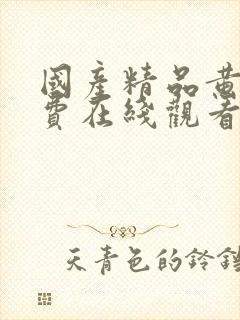 國產精品黄
費在綫觀看
天青色的鈴鐺